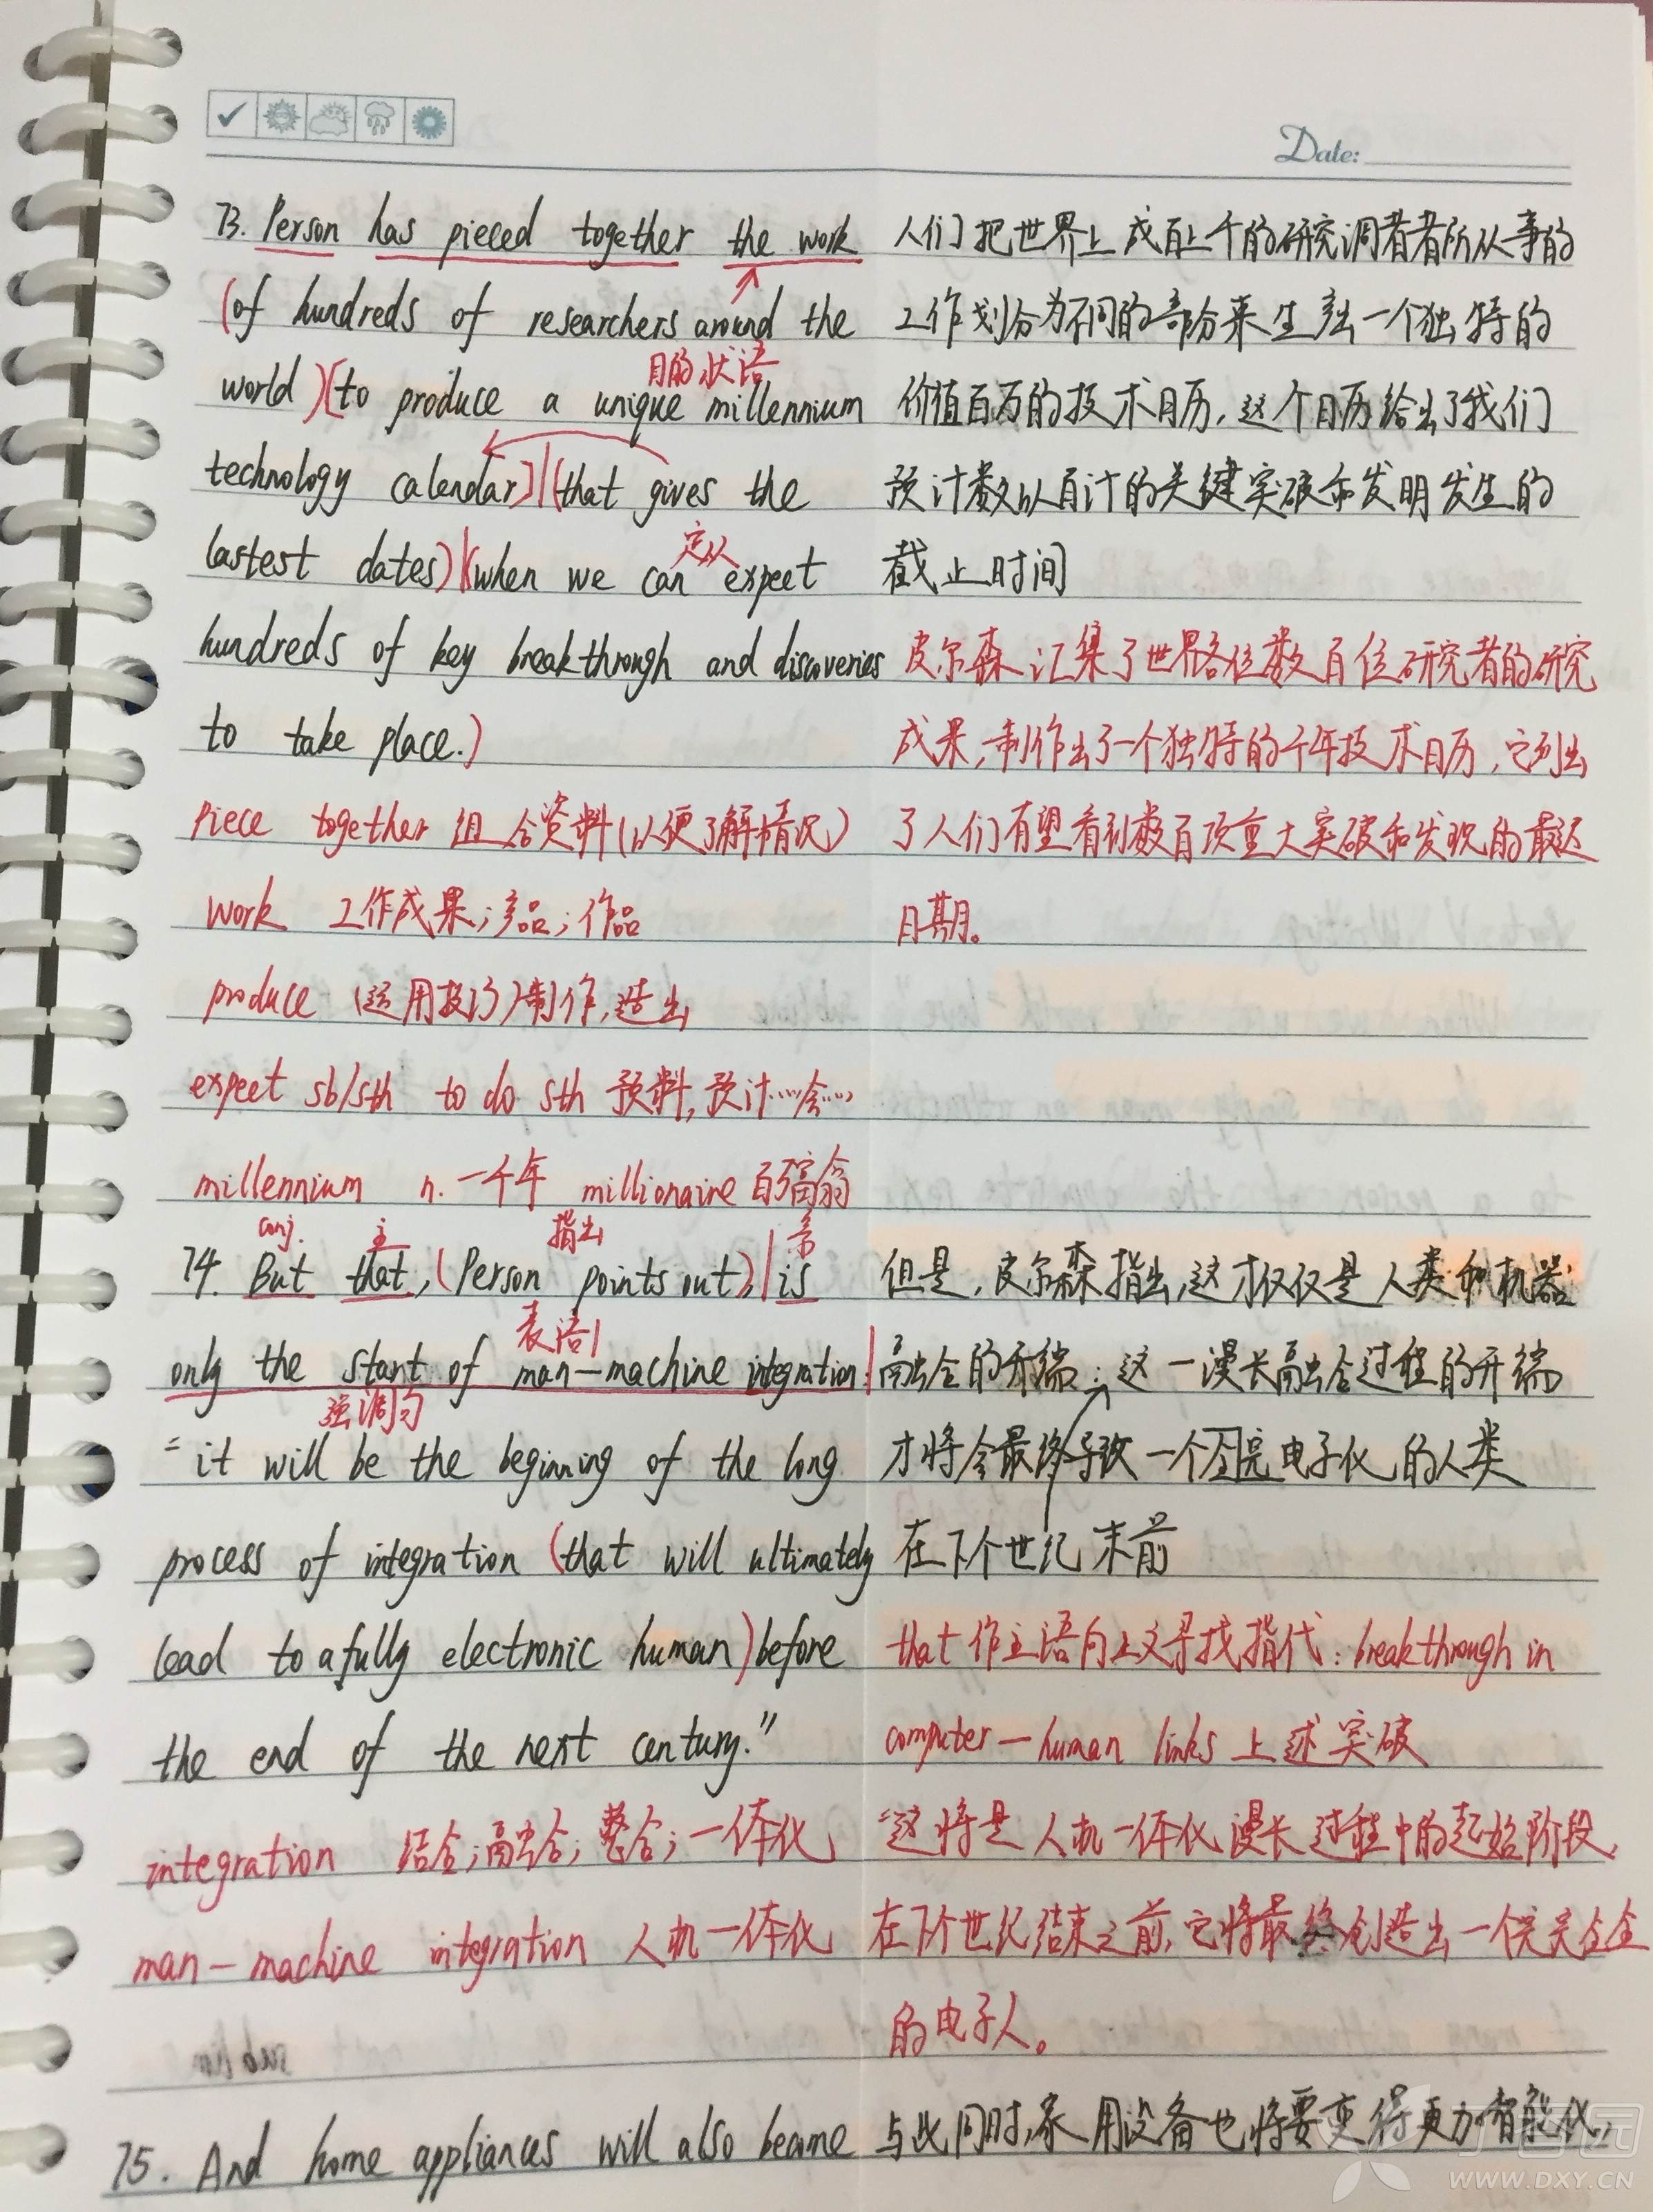 Date:
73. Person has pieced together the work
(of hundreds of researchers around the
目的状语
world)[to produce a unique millennium
technology calendar]|(that gives the
定从
lastest dates)|(when we can expect
hundreds of key breakthrough and discoveries
to take place.)
piece together 组合资料(以便了解情况)
work 工作成果;产品;作品
produce (运用技巧)制作,造出
expect sb/sth to do sth 预料,预计……会……
millennium n. 一千年 millionaire 百万富翁
conj. 主 指出 系
74. But that,(Person points out)|is
表语
only the start of man-machine integration:|
强调句
"it will be the beginning of the long
process of integration (that will ultimately
lead to a fully electronic human) before
the end of the next century."
integration 结合;融合;整合;一体化
man-machine integration 人机一体化
75. And home appliances will also become
人们把世界上成百上千的研究调者者所从事的
工作划分为不同的部分来生产出一个独特的
价值百万的技术日历,这个日历给出了我们
预计数以百计的关键突破和发明发生的
截止时间
皮尔森汇集了世界各位数百位研究者的研究
成果,制作出了一个独特的千年技术日历,它列出
了人们有望看到数百项重大突破和发现的最迟
日期。
但是,皮尔森指出,这才仅仅是人类和机器
融合的开端:这一漫长融合过程的开端
才将会最终导致一个全电子化的人类
在下个世纪末前
that作主语向上文寻找指代:breakthrough in
computer-human links 上述突破
"这将是人机一体化漫长过程中的起始阶段,
在下个世纪结束之前,它将最终创造出一个完完全全
的电子人。
与此同时,家用设备也将要变得更为智能化,
丁香园
WWW.DXY.CN